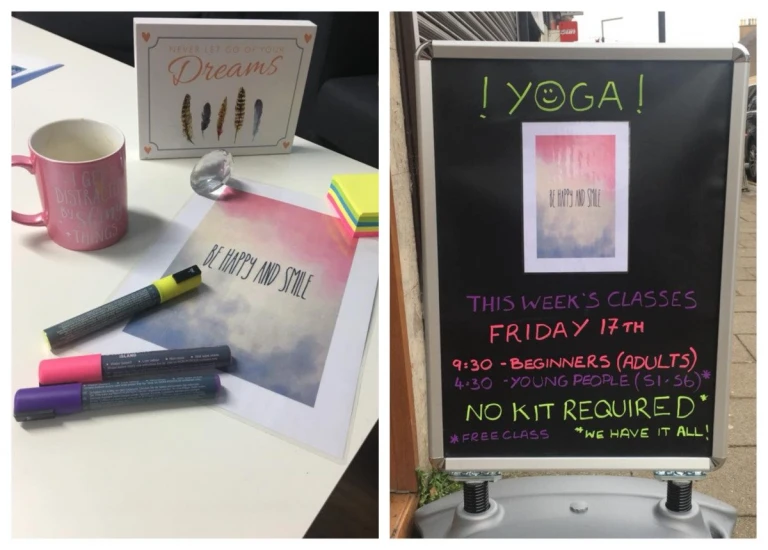 NEVER LET GO OF YOUR
Dreams
I GET
DISTRACTED
BY SHINY
THINGS
BE HAPPY AND SMILE
! YOGA !
BE HAPPY AND SMILE
THIS WEEK'S CLASSES
FRIDAY 17TH
9:30 - BEGINNERS (ADULTS)
4:30 - YOUNG PEOPLE (S1-S6)*
NO KIT REQUIRED*
*FREE CLASS *WE HAVE IT ALL!